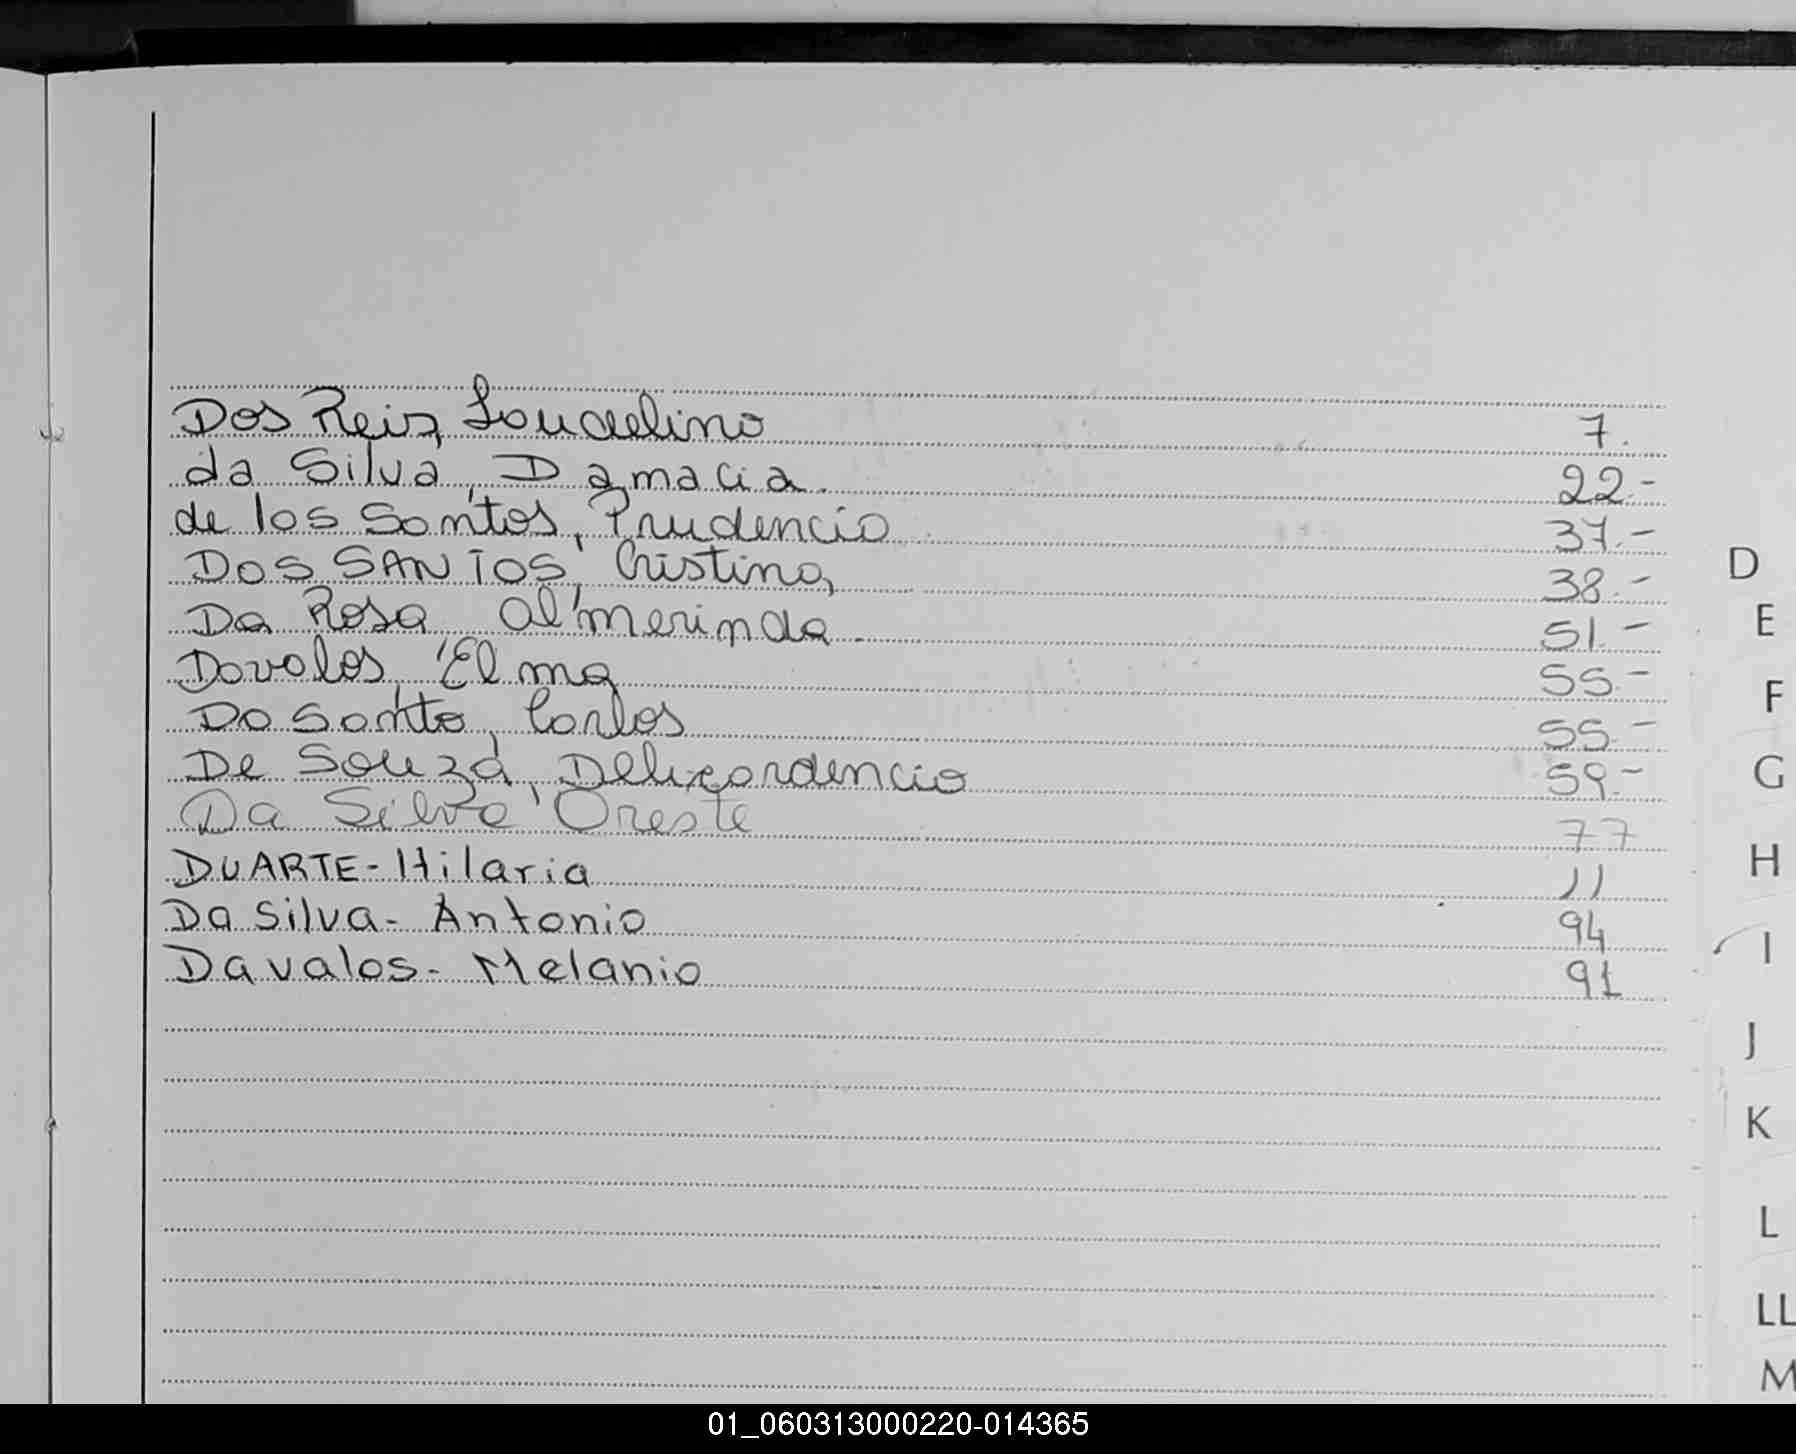 Dos Reis, Loudelino 7.
da Silva, Damacia. 22.-
de los Santos, Prudencio 37.-
DOS SANTOS, Cristina, 38.-
Da Rosa Almerinda. 51.-
Dovalos, Elma 55.-
Do Santo, Carlos 55.-
De Souza, 59.-
Da Silva Oreste 77
DUARTE - Hilaria 11
Da Silva - Antonio 94
Davalos - Melanio 91
D
E
F
G
H
I
J
K
L
LL
M
01_060313000220-014365